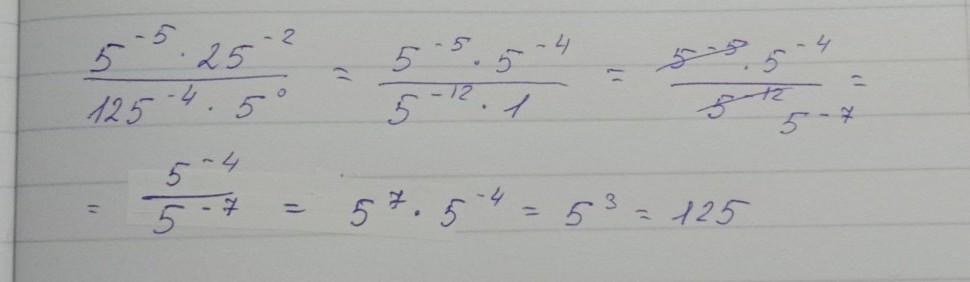 5^{-5} · 25^{-2} / 125^{-4} · 5^0 = 5^{-5} · 5^{-4} / 5^{-12} · 1 = 5^{-5} · 5^{-4} / 5^{-12} 5^{-7} =
= 5^{-4} / 5^{-7} = 5^7 · 5^{-4} = 5^3 = 125